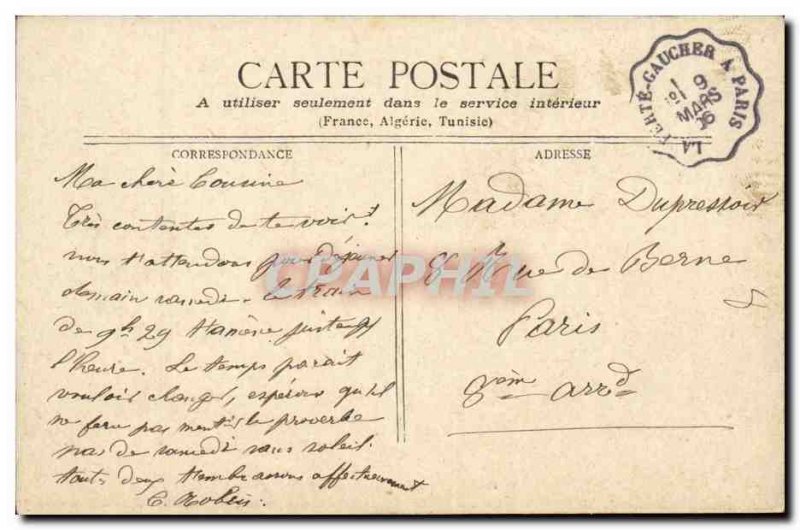 CARTE POSTALE
A utiliser seulement dans le service intérieur
(France, Algérie, Tunisie)
LA FERTÉ-GAUCHER A PARIS
9
MARS
06
CORRESPONDANCE
Ma chère Cousine
Très contentes de te voir
nous t'attendons pour déjeuner
demain samedi - le train
de 9h 29 t'amène juste
l'heure. Le temps parait
vouloir changer, espérons qu'il
ne fera pas mentir le proverbe
pas de samedi sans soleil.
toutes deux t'embrassons affectueusement
ADRESSE
Madame Dupressoir
Rue de Berne
Paris
8em arrd
CPAPHIL